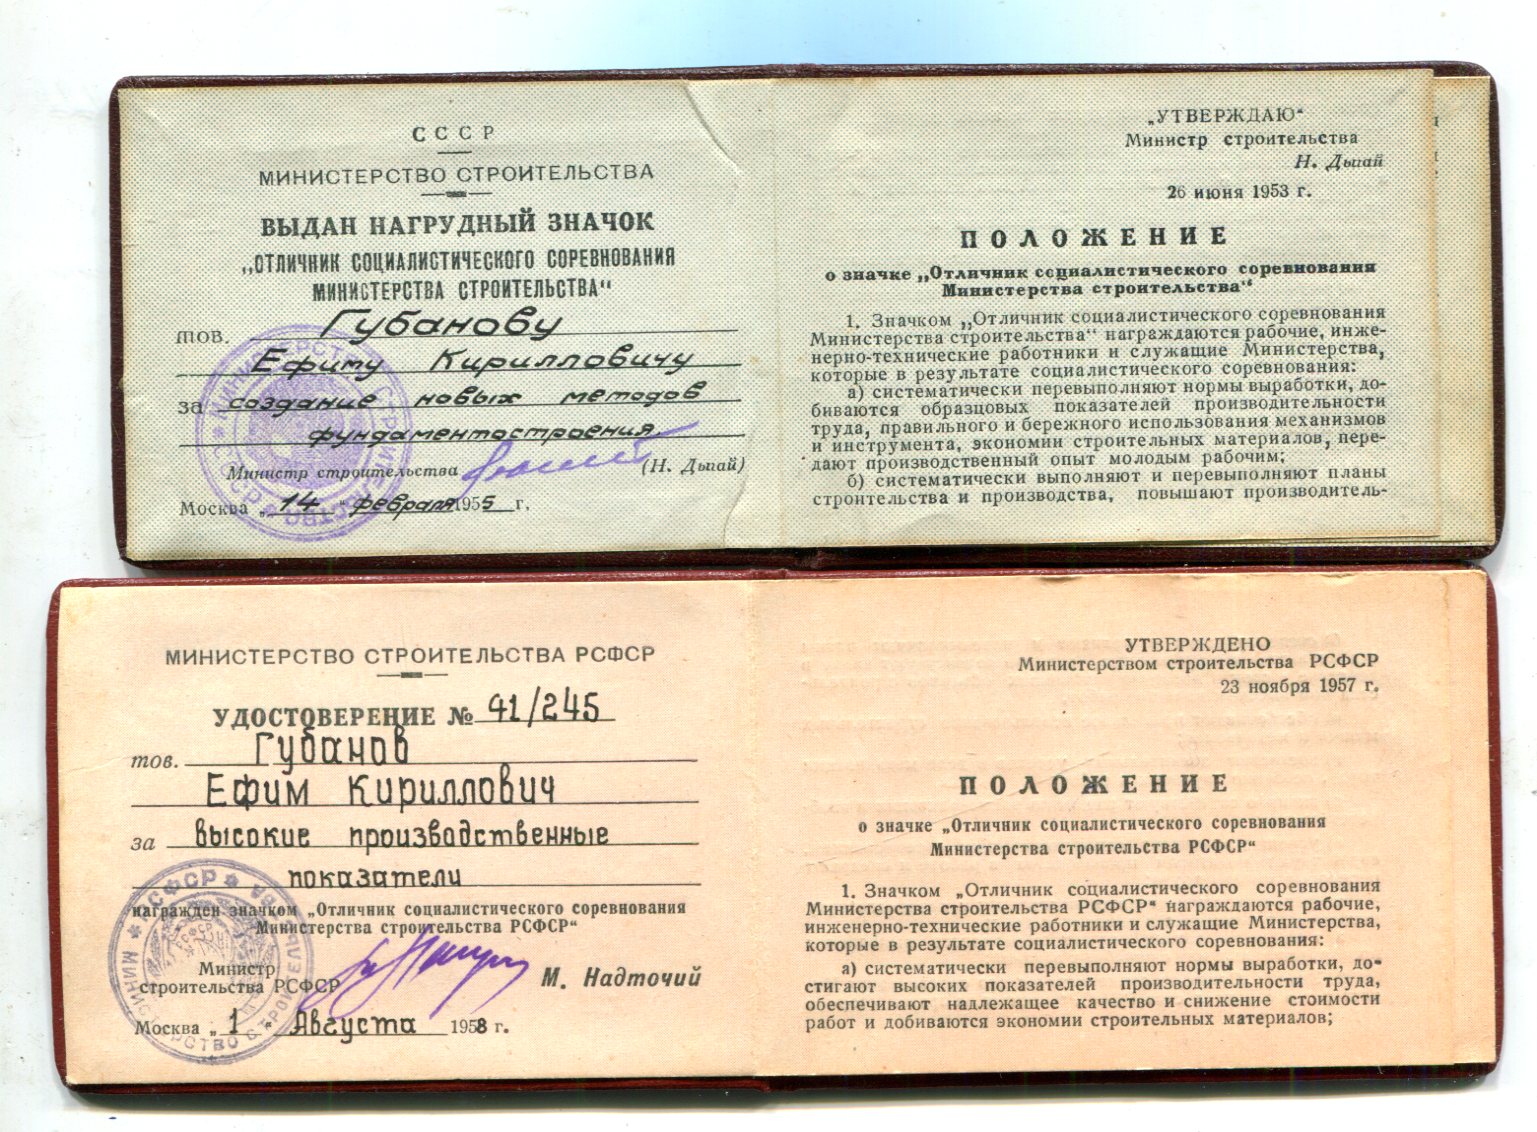 СССР
МИНИСТЕРСТВО СТРОИТЕЛЬСТВА
ВЫДАН НАГРУДНЫЙ ЗНАЧОК
„ОТЛИЧНИК СОЦИАЛИСТИЧЕСКОГО СОРЕВНОВАНИЯ
МИНИСТЕРСТВА СТРОИТЕЛЬСТВА“
тов. Губанову
Ефиму Кирилловичу
за создание новых методов
фундаментостроения
Министр строительства (Н. Дыгай)
Москва „14 февраля 1955 г.
МИНИСТЕРСТВО СТРОИТЕЛЬСТВА СССР
„УТВЕРЖДАЮ“
Министр строительства
Н. Дыгай
26 июня 1953 г.
ПОЛОЖЕНИЕ
о значке „Отличник социалистического соревнования
Министерства строительства“
1. Значком „Отличник социалистического соревнования
Министерства строительства“ награждаются рабочие, инже-
нерно-технические работники и служащие Министерства,
которые в результате социалистического соревнования:
а) систематически перевыполняют нормы выработки, до-
биваются образцовых показателей производительности
труда, правильного и бережного использования механизмов
и инструмента, экономии строительных материалов, пере-
дают производственный опыт молодым рабочим;
б) систематически выполняют и перевыполняют планы
строительства и производства, повышают производитель-
МИНИСТЕРСТВО СТРОИТЕЛЬСТВА РСФСР
УДОСТОВЕРЕНИЕ № 41/245
тов. Губанов
Ефим Кириллович
за высокие производственные
показатели
награжден значком „Отличник социалистического соревнования
Министерства строительства РСФСР“
Министр
строительства РСФСР М. Надточий
Москва „1 “ Августа 1958 г.
РСФСР МИНИСТЕРСТВО СТРОИТЕЛЬСТВА
УТВЕРЖДЕНО
Министерством строительства РСФСР
23 ноября 1957 г.
ПОЛОЖЕНИЕ
о значке „Отличник социалистического соревнования
Министерства строительства РСФСР“
1. Значком „Отличник социалистического соревнования
Министерства строительства РСФСР“ награждаются рабочие,
инженерно-технические работники и служащие Министерства,
которые в результате социалистического соревнования:
а) систематически перевыполняют нормы выработки, до-
стигают высоких показателей производительности труда,
обеспечивают надлежащее качество и снижение стоимости
работ и добиваются экономии строительных материалов;